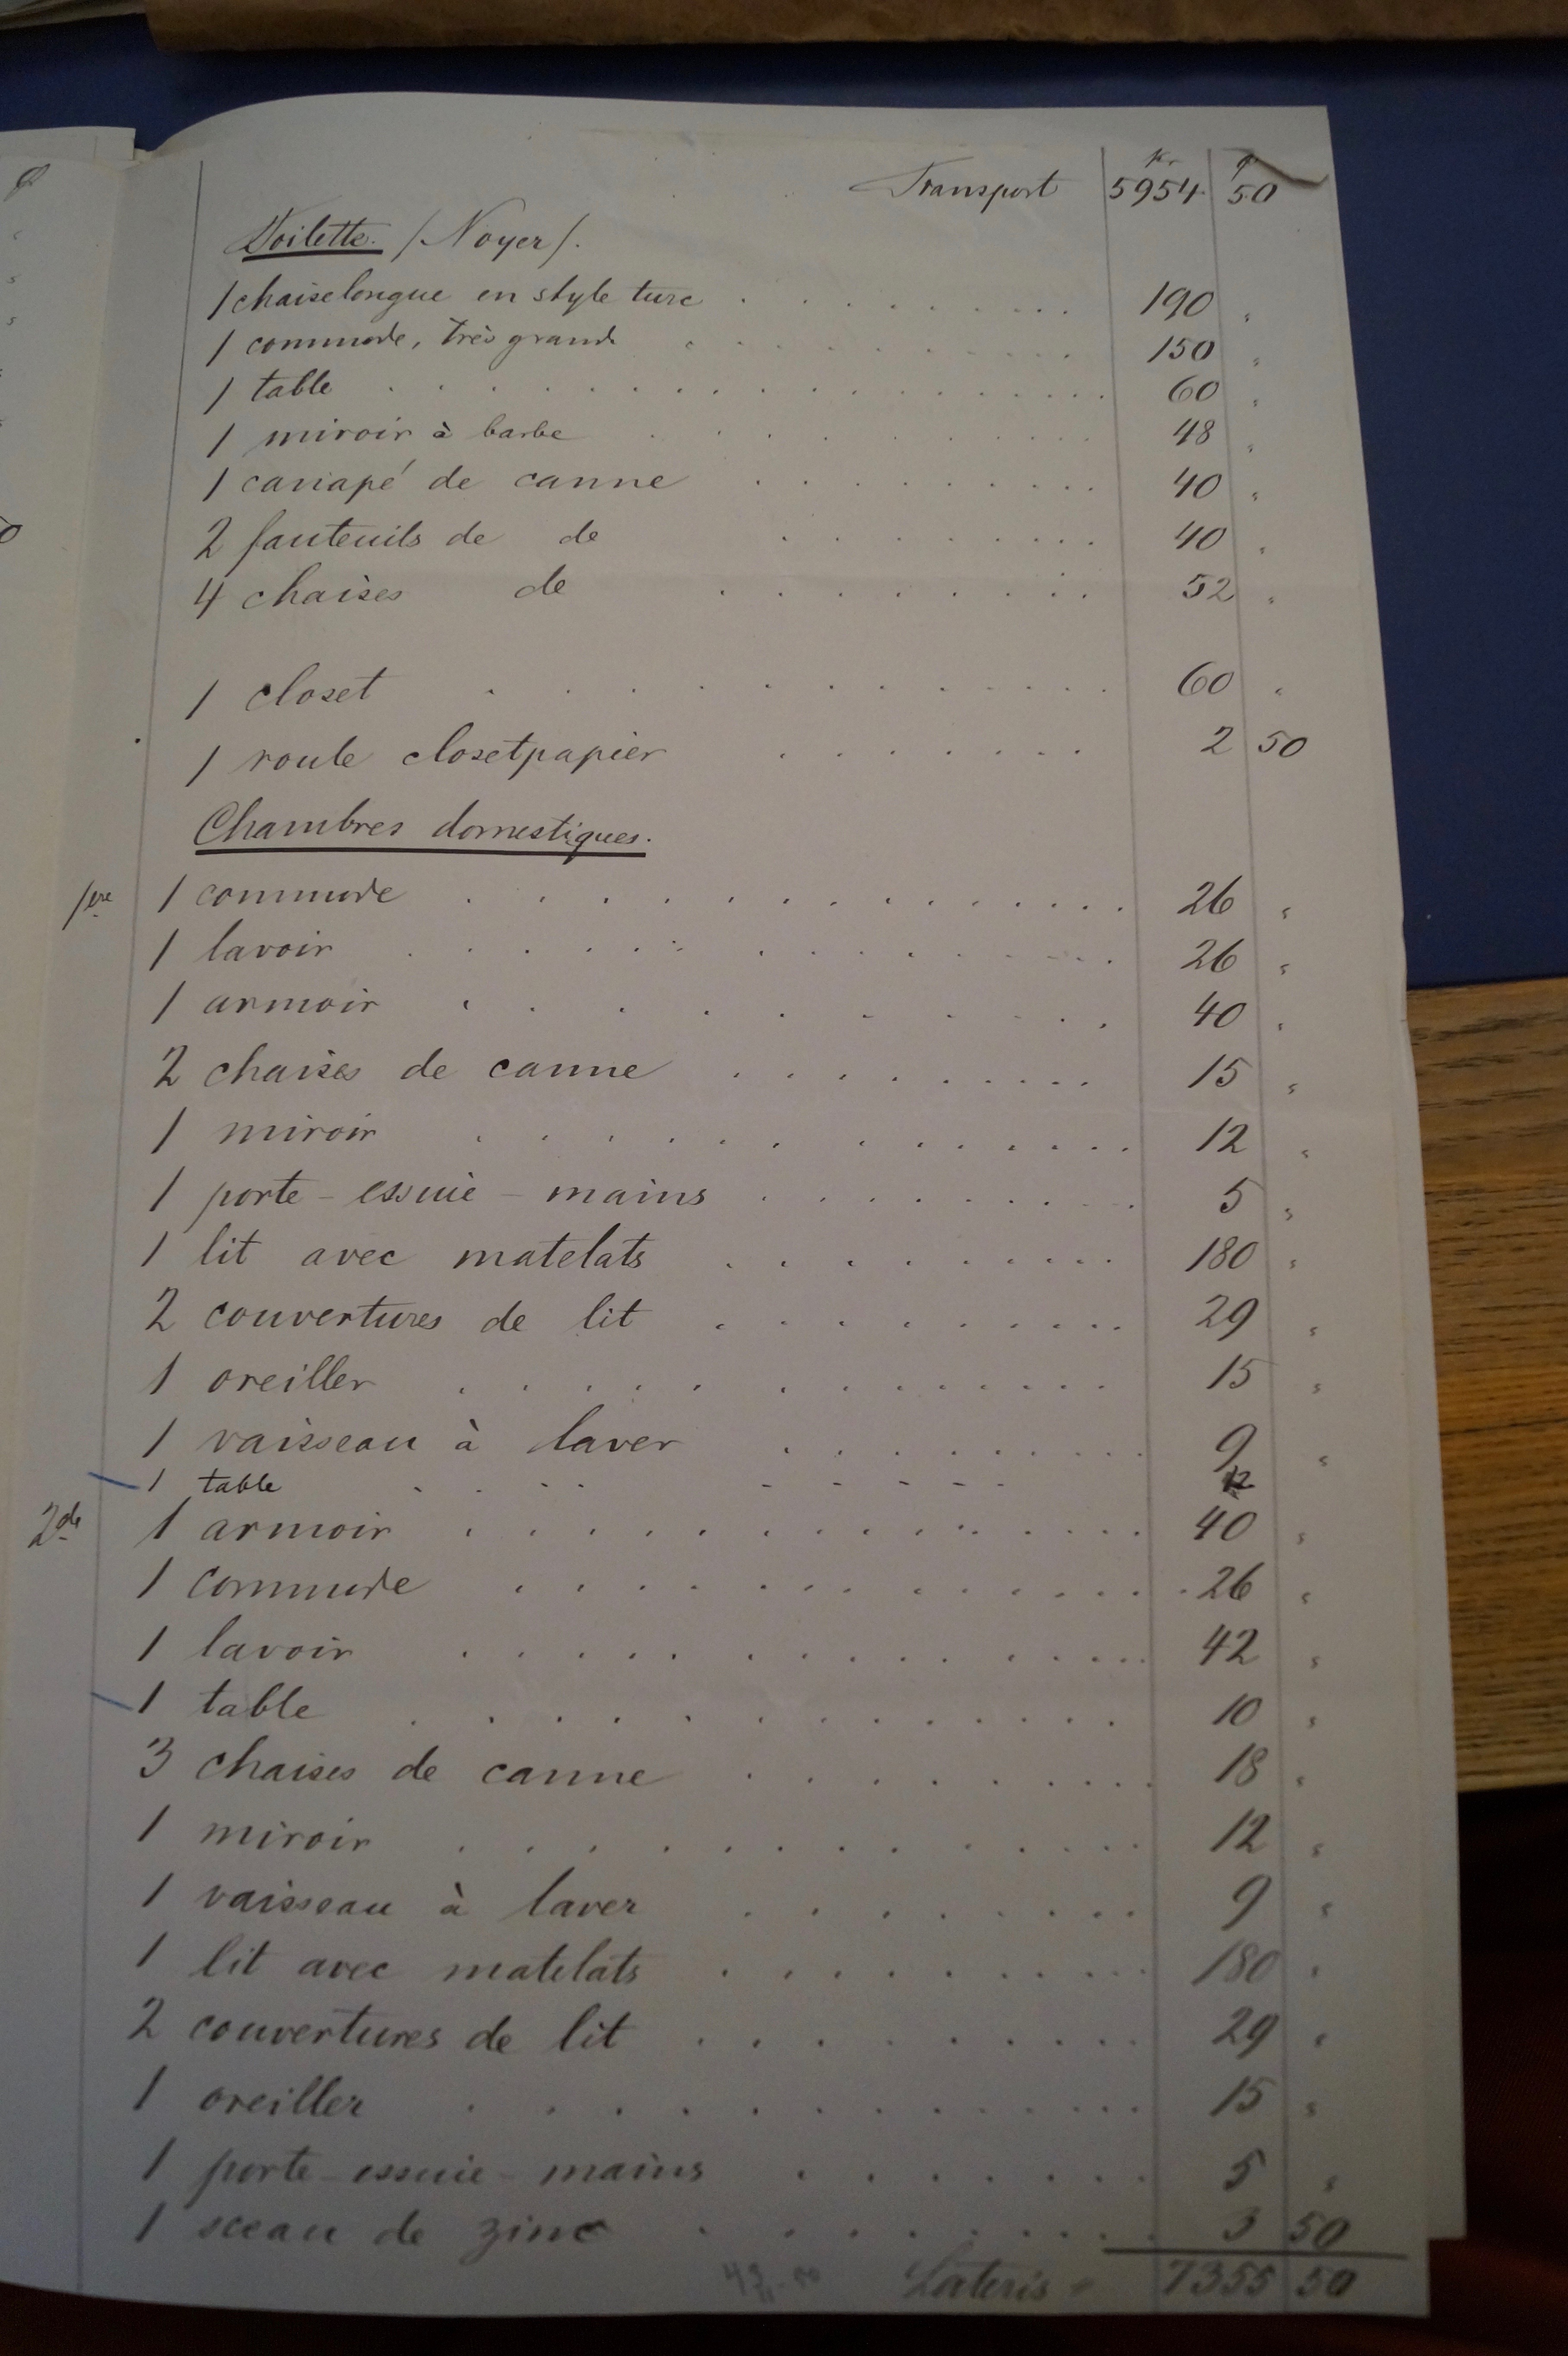 Kr. q
Transport 5954. 50
Toilette. /Noyer/.
1 chaiselongue en style turc . . . . . . . . 190 "
1 commode, très grand . . . . . . . . . . 150 "
1 table . . . . . . . . . . . . . . . . 60 "
1 miroir à barbe . . . . . . . . . 48 "
1 canapé de canne . . . . . . . . . 40 "
2 fauteuils de de . . . . . . . . . 40 "
4 chaises de . . . . . . . . . 52 "
1 closet . . . . . . . . . . . . 60 "
1 roule closetpapier . . . . . . . . 2 50
Chambres domestiques.
1ère 1 commode . . . . . . . . . . . . . 26 "
1 lavoir . . . . . . . . . . . . . 26 "
1 armoir . . . . . . . . . . . 40 "
2 chaises de canne . . . . . . . . . 15 "
1 miroir . . . . . . . . . . . . . 12 "
1 porte-essuie-mains . . . . . . . . . 5 "
1 lit avec matelats . . . . . . . . . 180 "
2 couvertures de lit . . . . . . . . . 29 "
1 oreiller . . . . . . . . . . . . . 15 "
1 vaisseau à laver . . . . . . . . . 9 "
1 table . . . . - - - - - 12
2de 1 armoir . . . . . . . . . . . . . . 40 "
1 commode . . . . . . . . . . . . . . 26 "
1 lavoir . . . . . . . . . . . . . . 42 "
1 table . . . . . . . . . . . . . 10 "
3 chaises de canne . . . . . . . . . 18 "
1 miroir . . . . . . . . . . . . . 12 "
1 vaisseau à laver . . . . . . . . . 9 "
1 lit avec matelats . . . . . . . . . . 180 "
2 couvertures de lit . . . . . . . . . . 29 "
1 oreiller . . . . . . . . . . . . . 15 "
1 porte-essuie-mains . . . . . . . . 5 "
1 sceau de zinc . . . . . . . . . 3 50
Lateris = 7355 50